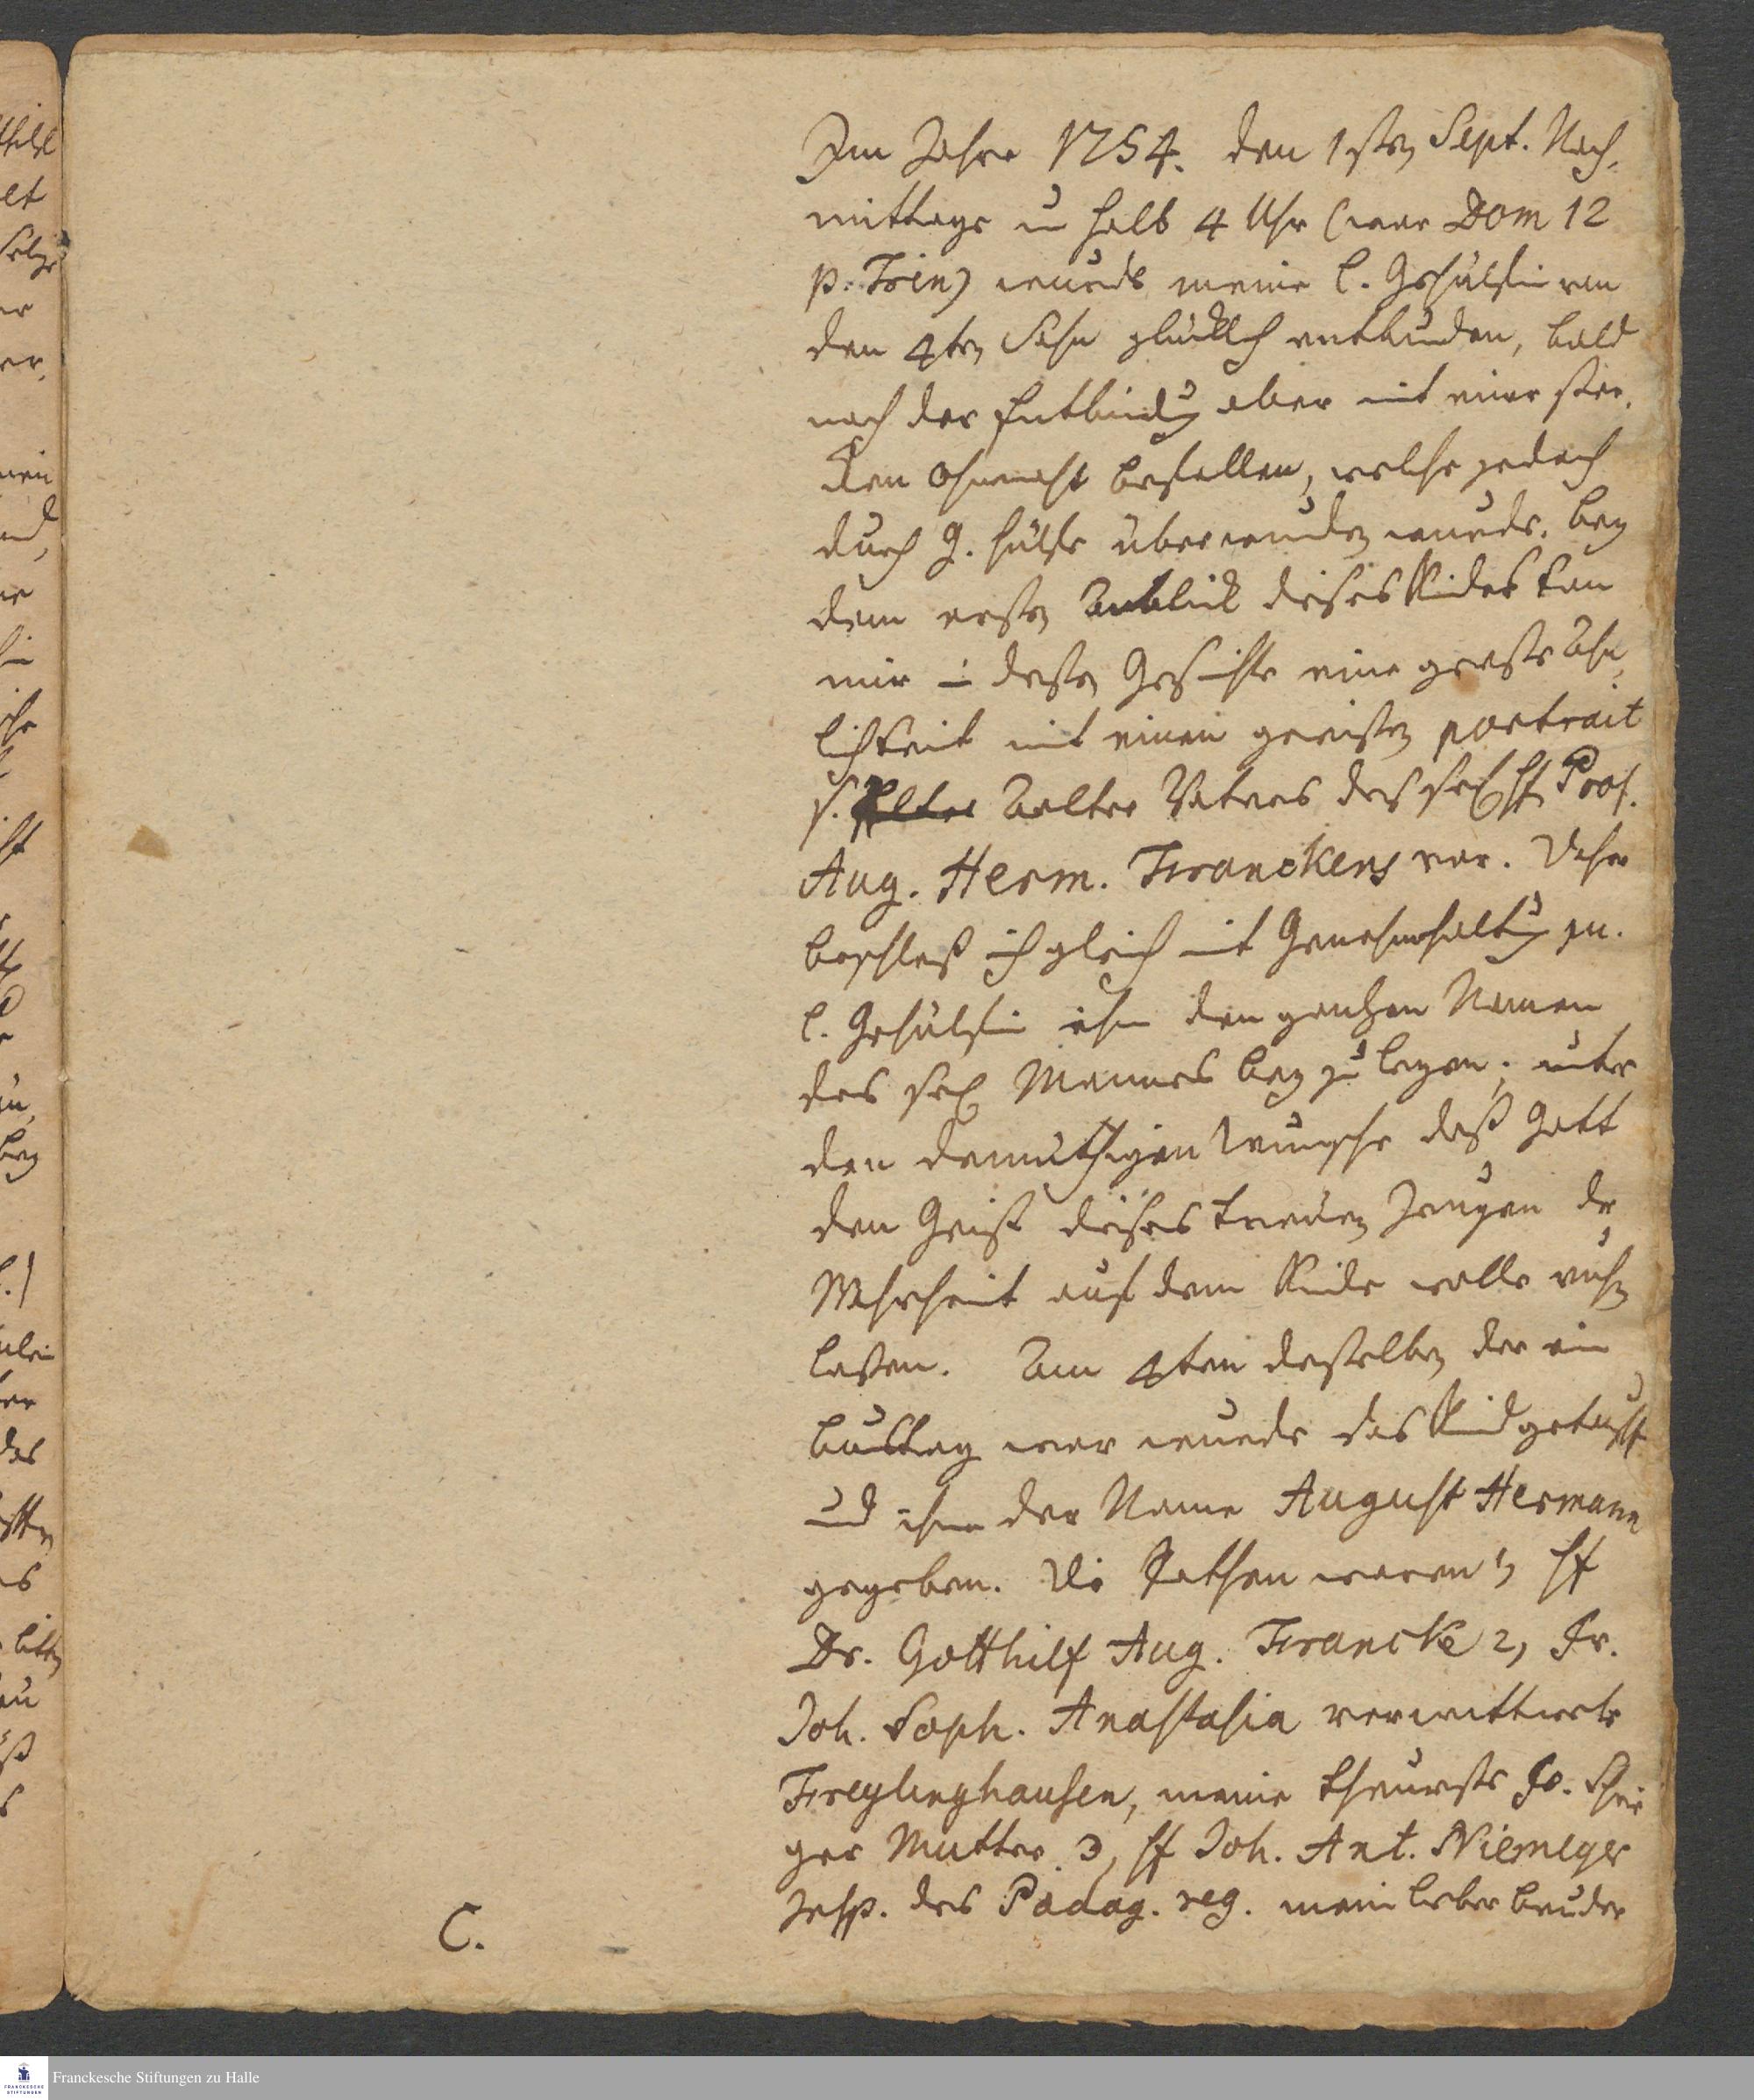 Im Jahre 1754. den 1sten Sept. Nach-
mittags um halb 4 Uhr (war Dom 12
p. Trin) wurde meine l. Gehülfin von
den 4ten Sohn glücklich entbunden, bald
nach der Entbindung aber mit einer star-
cken Ohnmacht befallen, welche jedoch
durch G. Hülfe überwunden wurde. Bey
dem ersten Anblick dieses Kindes kam
mir in deßen Gesichte eine große Ähn-
lichkeit mit einem gewißen portrait
s. Aelter Vaters des sel. H. Prof.
Aug. Herm. Franckens vor. Daher
beschloß ich gleich mit Genehmhaltung m.
l. Gehülfin ihm den gantzen Namen
des sel. Mannes bey zu legen; unter
den demüthigen Wunsche daß Gott
den Geist dieses treuen Zeugen der
Wahrheit auf dem Kinde wolle ruhen
laßen. Am 4ten deßelben der ein
Bustag war wurde das Kind getauft
und ihm der Name August Hermann
gegeben. Die Pathen waren 1, H.
Dr. Gotthilf Aug. Francke 2, Fr.
Joh. Soph. Anastasia verwittwete
Freylinghausen, meine theureste Fr. Schwie
ger Mutter. 3, H. Joh. Ant. Niemeyer
Insp. des Pädag. reg. mein lieber Bruder
C.
Franckesche Stiftungen zu Halle
FRANCKESCHE
STIFTUNGEN